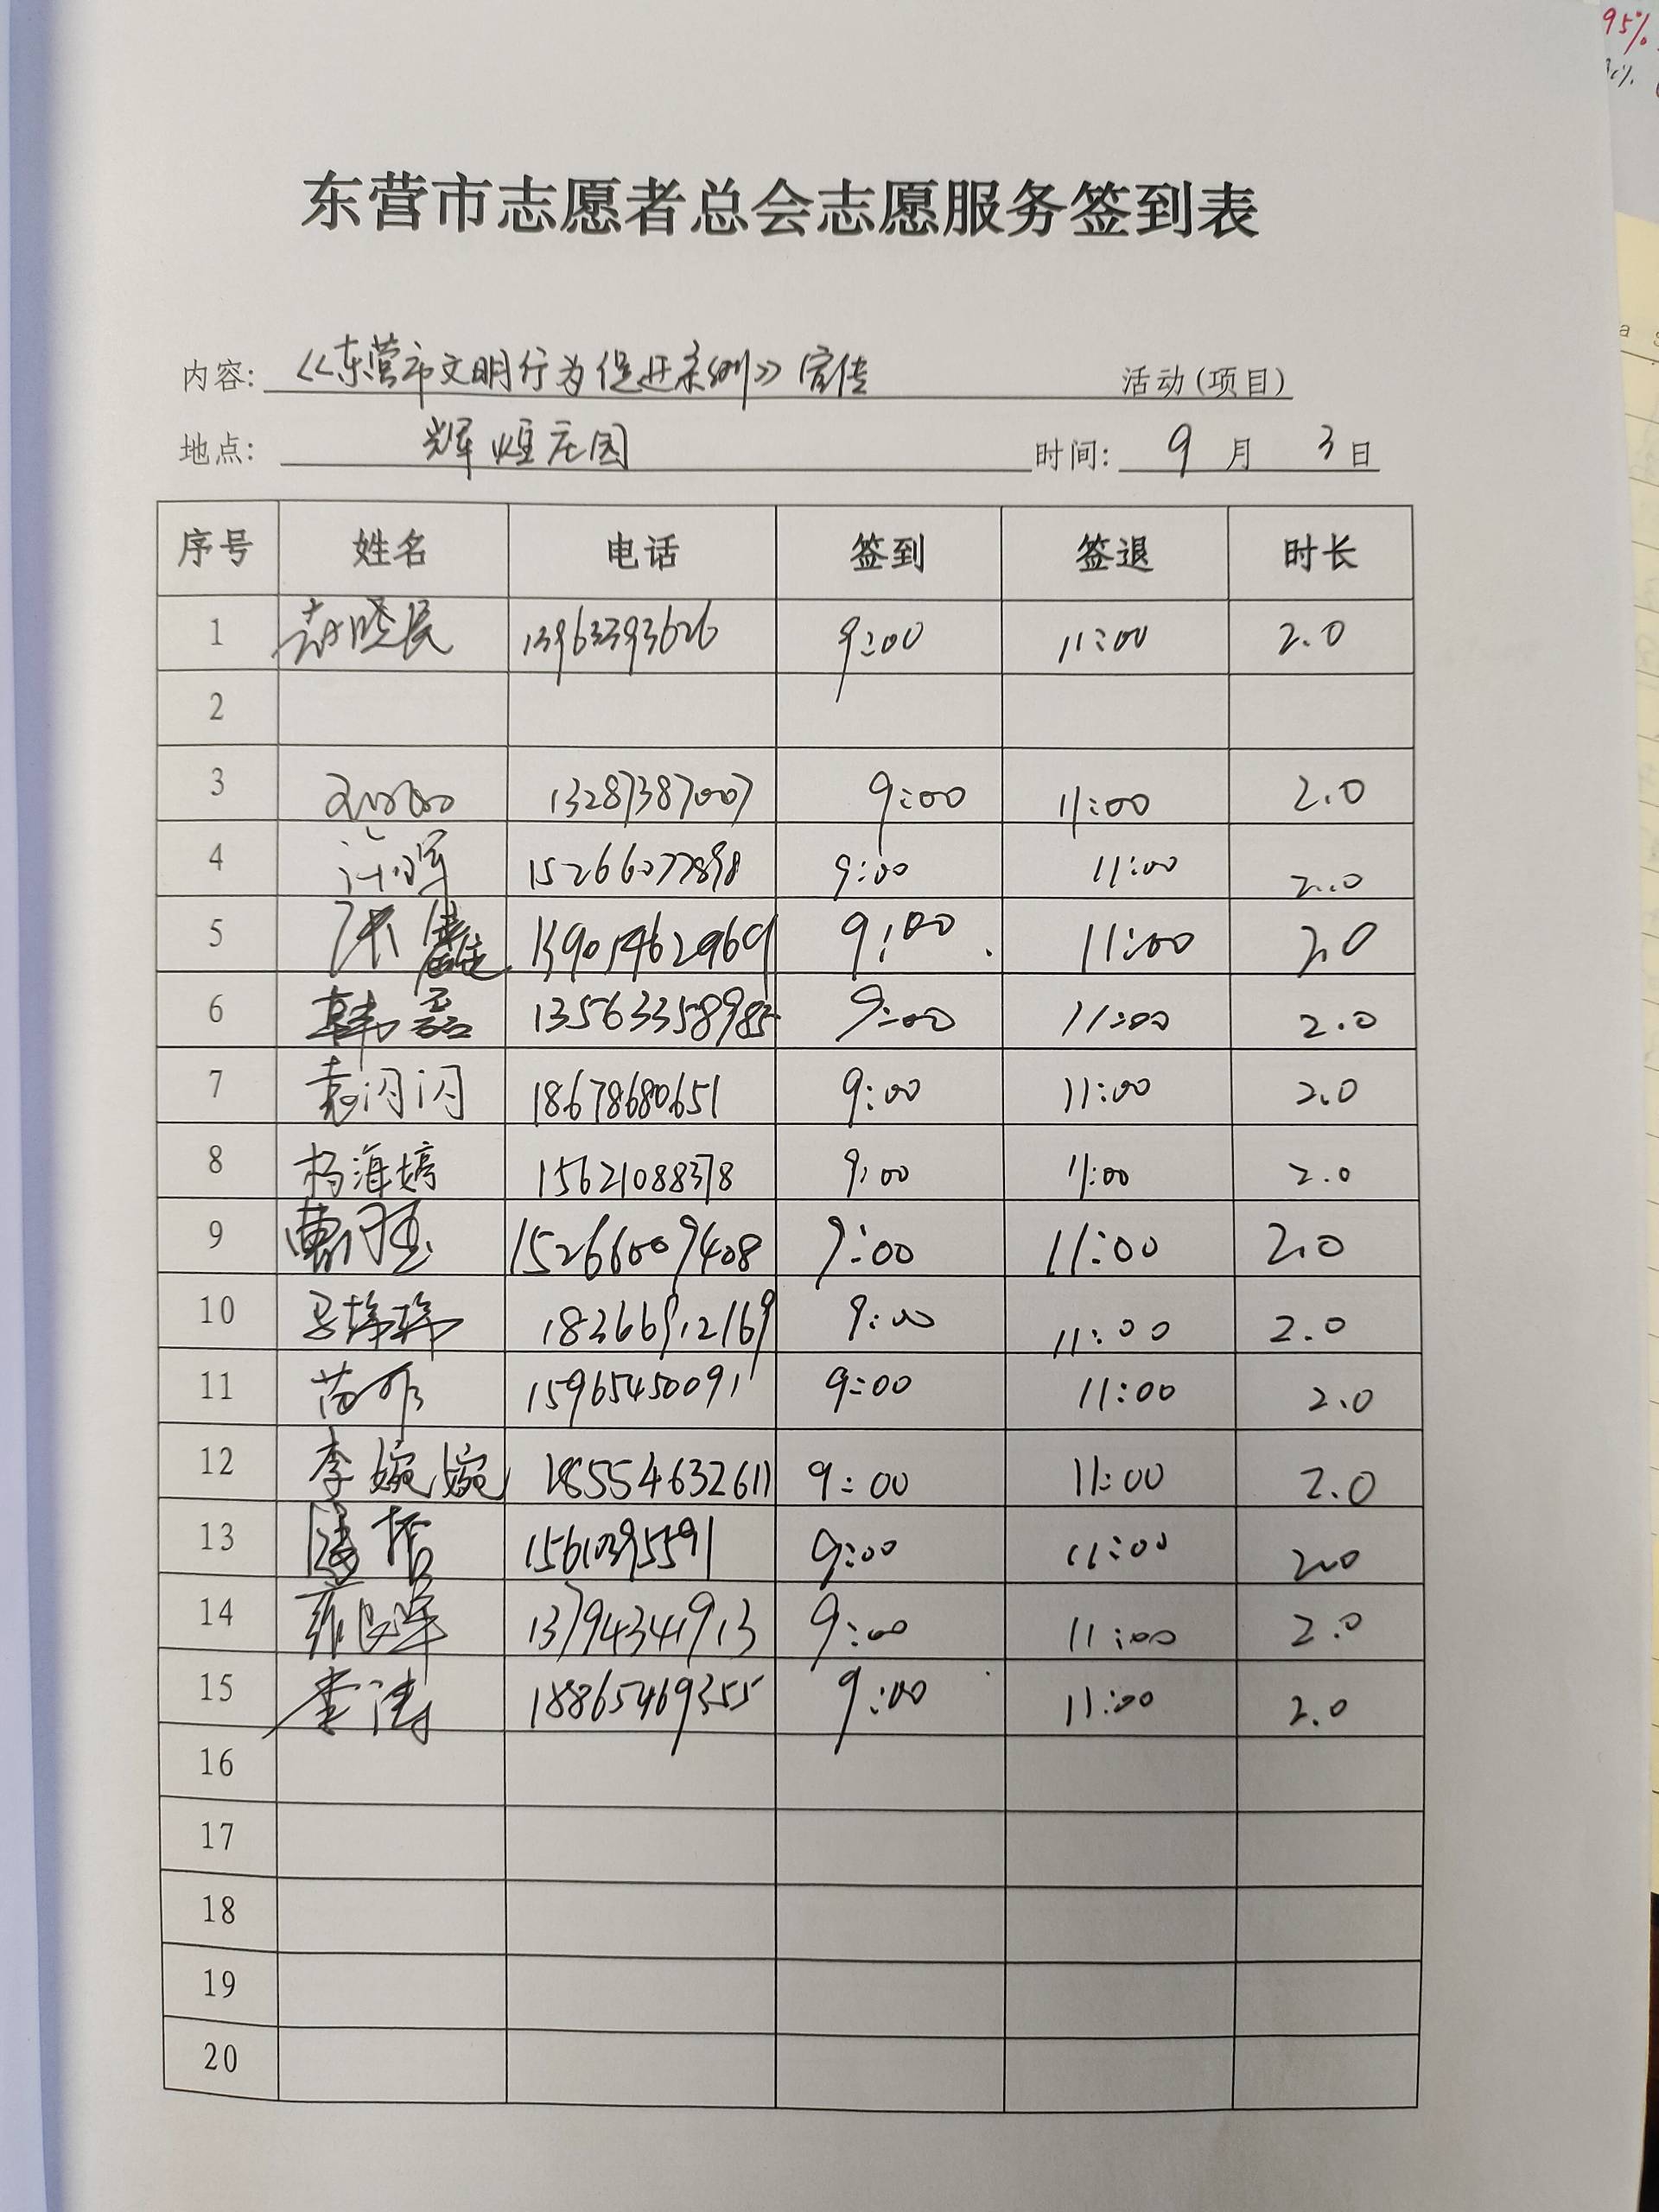 95%
东营市志愿者总会志愿服务签到表
内容: 《东营市文明行为促进条例》宣传 活动(项目)
地点: 辉煌庄园 时间: 9月 3日
序号 姓名 电话 签到 签退 时长
1 赵晓民 13963393626 9:00 11:00 2.0
2
3 13287387007 9:00 11:00 2.0
4 15266077898 9:00 11:00 2.0
5 9:00 11:00 2.0
6 韩磊 13563358985 9:00 11:00 2.0
7 袁闪闪 18678680651 9:00 11:00 2.0
8 杨海婷 15621088378 9:00 11:00 2.0
9 15266009408 9:00 11:00 2.0
10 18366912169 9:00 11:00 2.0
11 15965450091 9:00 11:00 2.0
12 李婉婉 18554632611 9:00 11:00 2.0
13 9:00 11:00 2.0
14 13794341913 9:00 11:00 2.0
15 李涛 18865469355 9:00 11:00 2.0
16
17
18
19
20